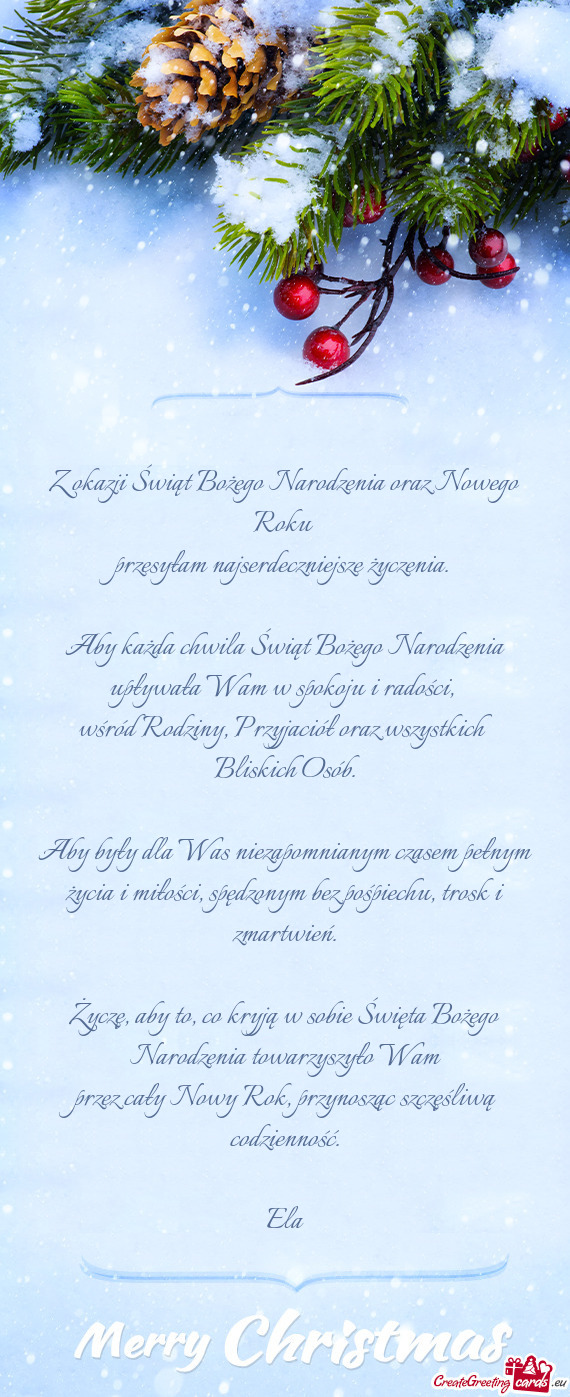 Z okazji Świąt Bożego Narodzenia oraz Nowego
Roku
przesyłam najserdeczniejsze życzenia.
Aby każda chwila Świąt Bożego Narodzenia
upływała Wam w spokoju i radości,
wśród Rodziny, Przyjaciół oraz wszystkich
Bliskich Osób.
Aby były dla Was niezapomnianym czasem pełnym
życia i miłości, spędzonym bez pośpiechu, trosk i
zmartwień.
Życzę, aby to, co kryją w sobie Święta Bożego
Narodzenia towarzyszyło Wam
przez cały Nowy Rok, przynosząc szczęśliwą
codzienność.
Ela
Merry Christmas
CreateGreeting cards .eu